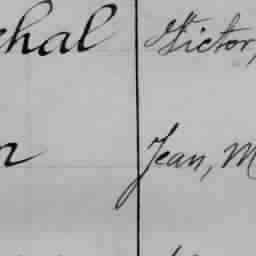 chal Victor,
n Jean, M